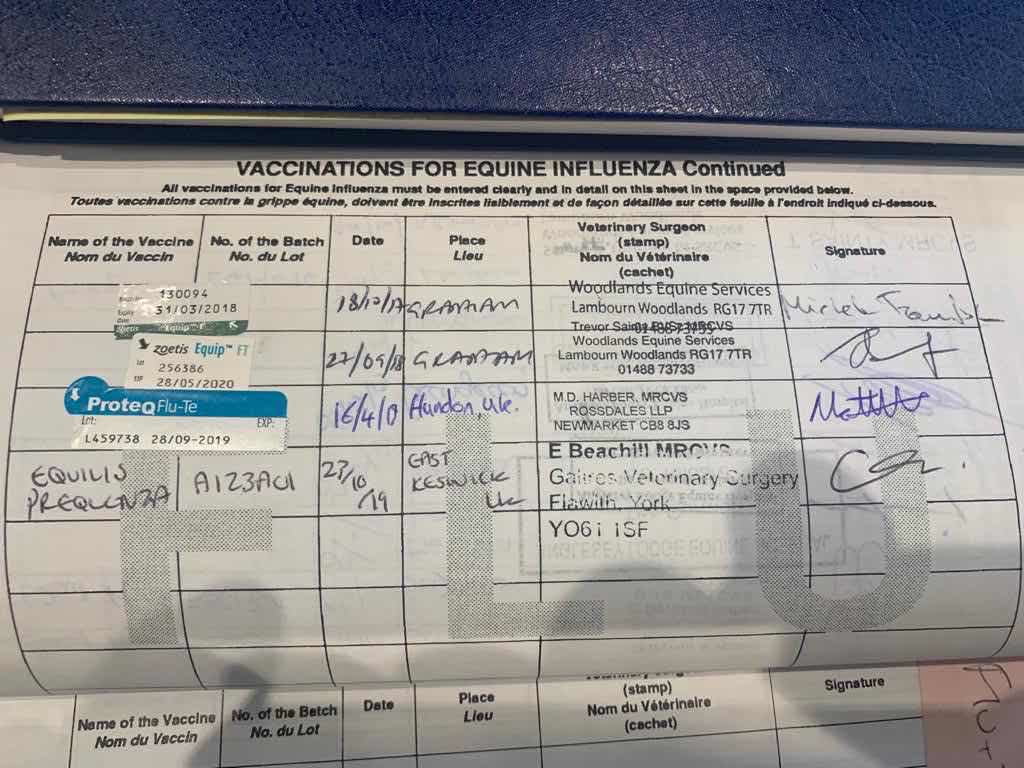 VACCINATIONS FOR EQUINE INFLUENZA Continued
All vaccinations for Equine Influenza must be entered clearly and in detail on this sheet in the space provided below.
Toutes vaccinations contre la grippe équine, doivent être inscrites lisiblement et de façon détaillée sur cette feuille à l'endroit indiqué ci-dessous.
Name of the Vaccine
Nom du Vaccin
No. of the Batch
No. du Lot
Date
Place
Lieu
Veterinary Surgeon
(stamp)
Nom du Vétérinaire
(cachet)
Signature
130094
31/03/2018
zoetis Equip™
18/10/17
GRAHAM
Woodlands Equine Services
Lambourn Woodlands RG17 7TR
zoetis Equip™ FT
256386
28/05/2020
27/09/18
GRAHAM
Trevor MRCVS
Woodlands Equine Services
Lambourn Woodlands RG17 7TR
01488 73733
ProteqFlu-Te
Lot: EXP:
L459738 28/09-2019
16/4/
M.D. HARBER, MRCVS
ROSSDALES LLP
NEWMARKET CB8 8JS
EQUILIS
PREQUENZA
A123A01
23/10/19
EAST
KESWICK
UK
E Beachill MRCVS
Veterinary Surgery
Flawith, York
YO61 1SF
FLU
Name of the Vaccine
Nom du Vaccin
No. of the Batch
No. du Lot
Date
Place
Lieu
(stamp)
Nom du Vétérinaire
(cachet)
Signature